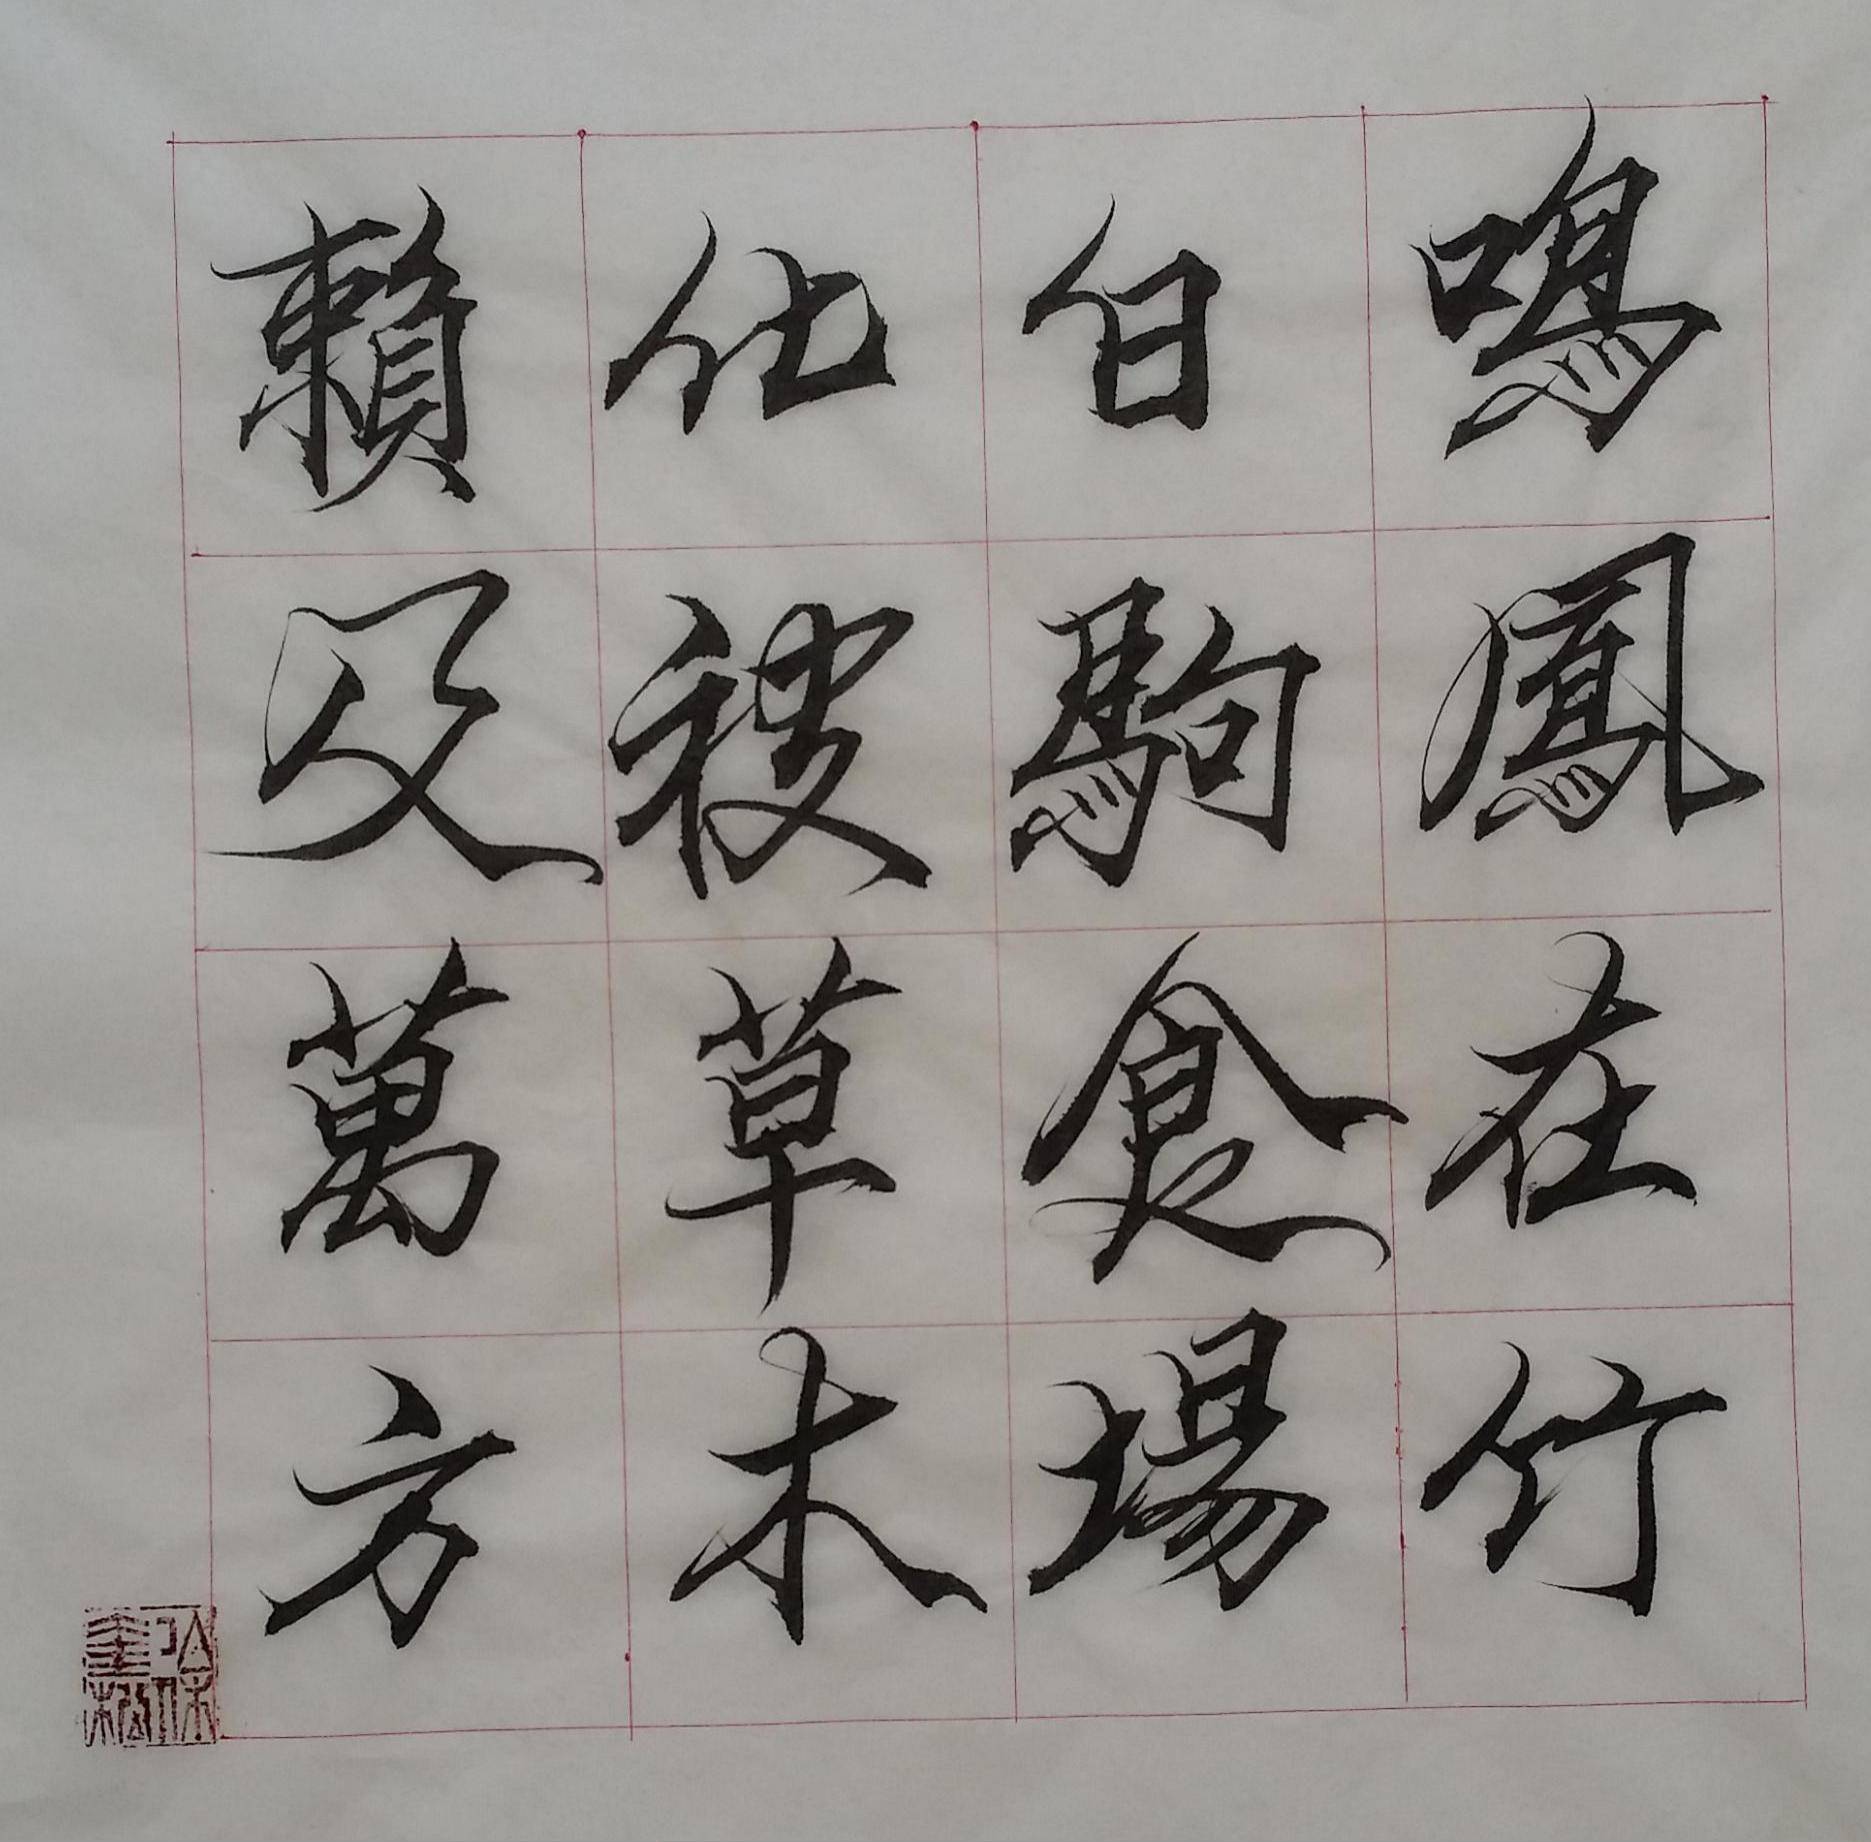 鳴鳳在竹
白駒食場
化被草木
賴及萬方